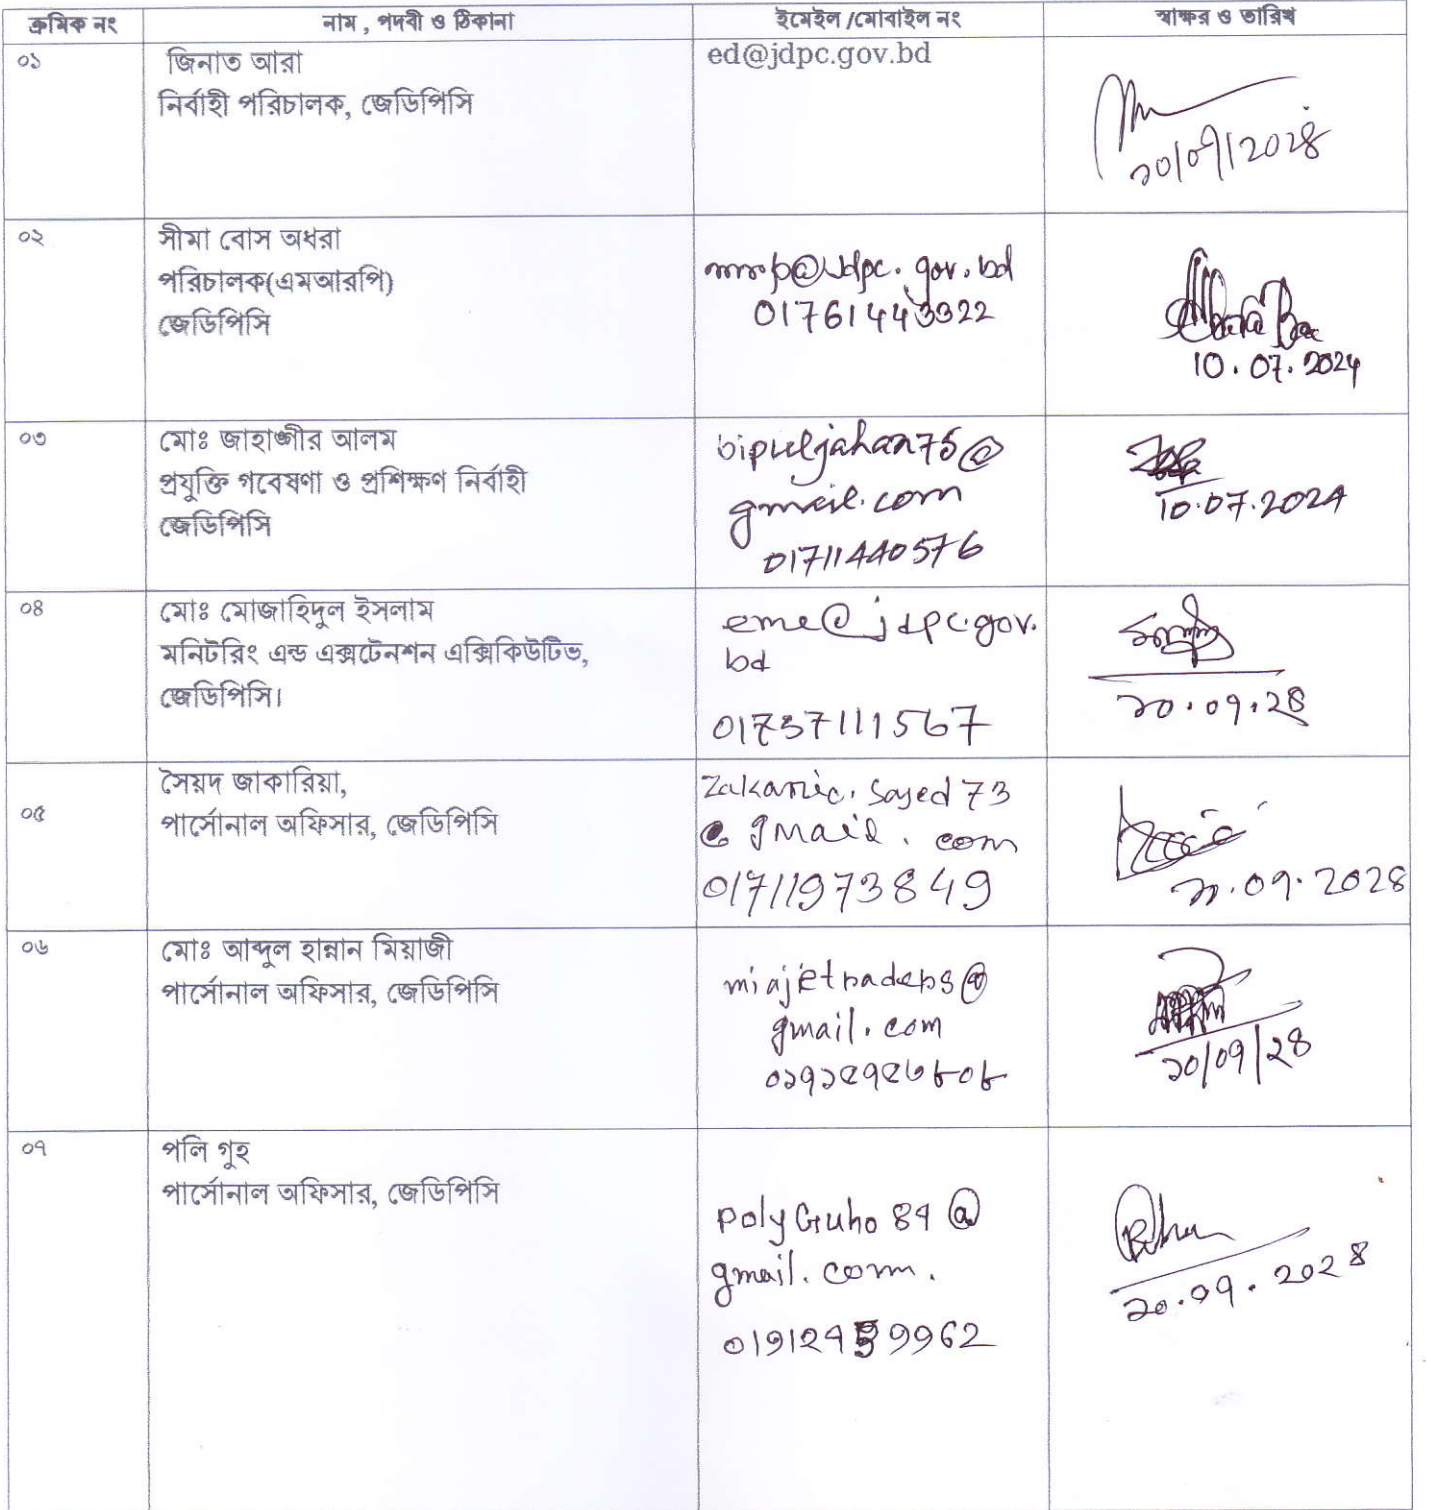 ক্রমিক নং
নাম , পদবী ও ঠিকানা
ইমেইল /মোবাইল নং
স্বাক্ষর ও তারিখ
০১
জিনাত আরা
নির্বাহী পরিচালক, জেডিপিসি
ed@jdpc.gov.bd
১০/০৭/২০২৪
০২
সীমা বোস অধরা
পরিচালক(এমআরপি)
জেডিপিসি
@jdpc.gov.bd
01761443322
10.07.2024
০৩
মোঃ জাহাঙ্গীর আলম
প্রযুক্তি গবেষণা ও প্রশিক্ষণ নির্বাহী
জেডিপিসি
bipuljahan75@
gmail.com
01711440576
10.07.2024
০৪
মোঃ মোজাহিদুল ইসলাম
মনিটরিং এন্ড এক্সটেনশন এক্সিকিউটিভ,
জেডিপিসি।
eme@jdpc.gov.
bd
01737111567
১০.০৭.২৪
০৫
সৈয়দ জাকারিয়া,
পার্সোনাল অফিসার, জেডিপিসি
zakaria.sayed73
@gmail.com
01711973849
০৭.২০২৪
০৬
মোঃ আব্দুল হান্নান মিয়াজী
পার্সোনাল অফিসার, জেডিপিসি
miajetraders@
gmail.com
০১৭১৫৭৫৬৮০৮
১০/০৭/২৪
০৭
পলি গুহ
পার্সোনাল অফিসার, জেডিপিসি
polyGuho84@
gmail.com.
১০.০৭.২০২৪